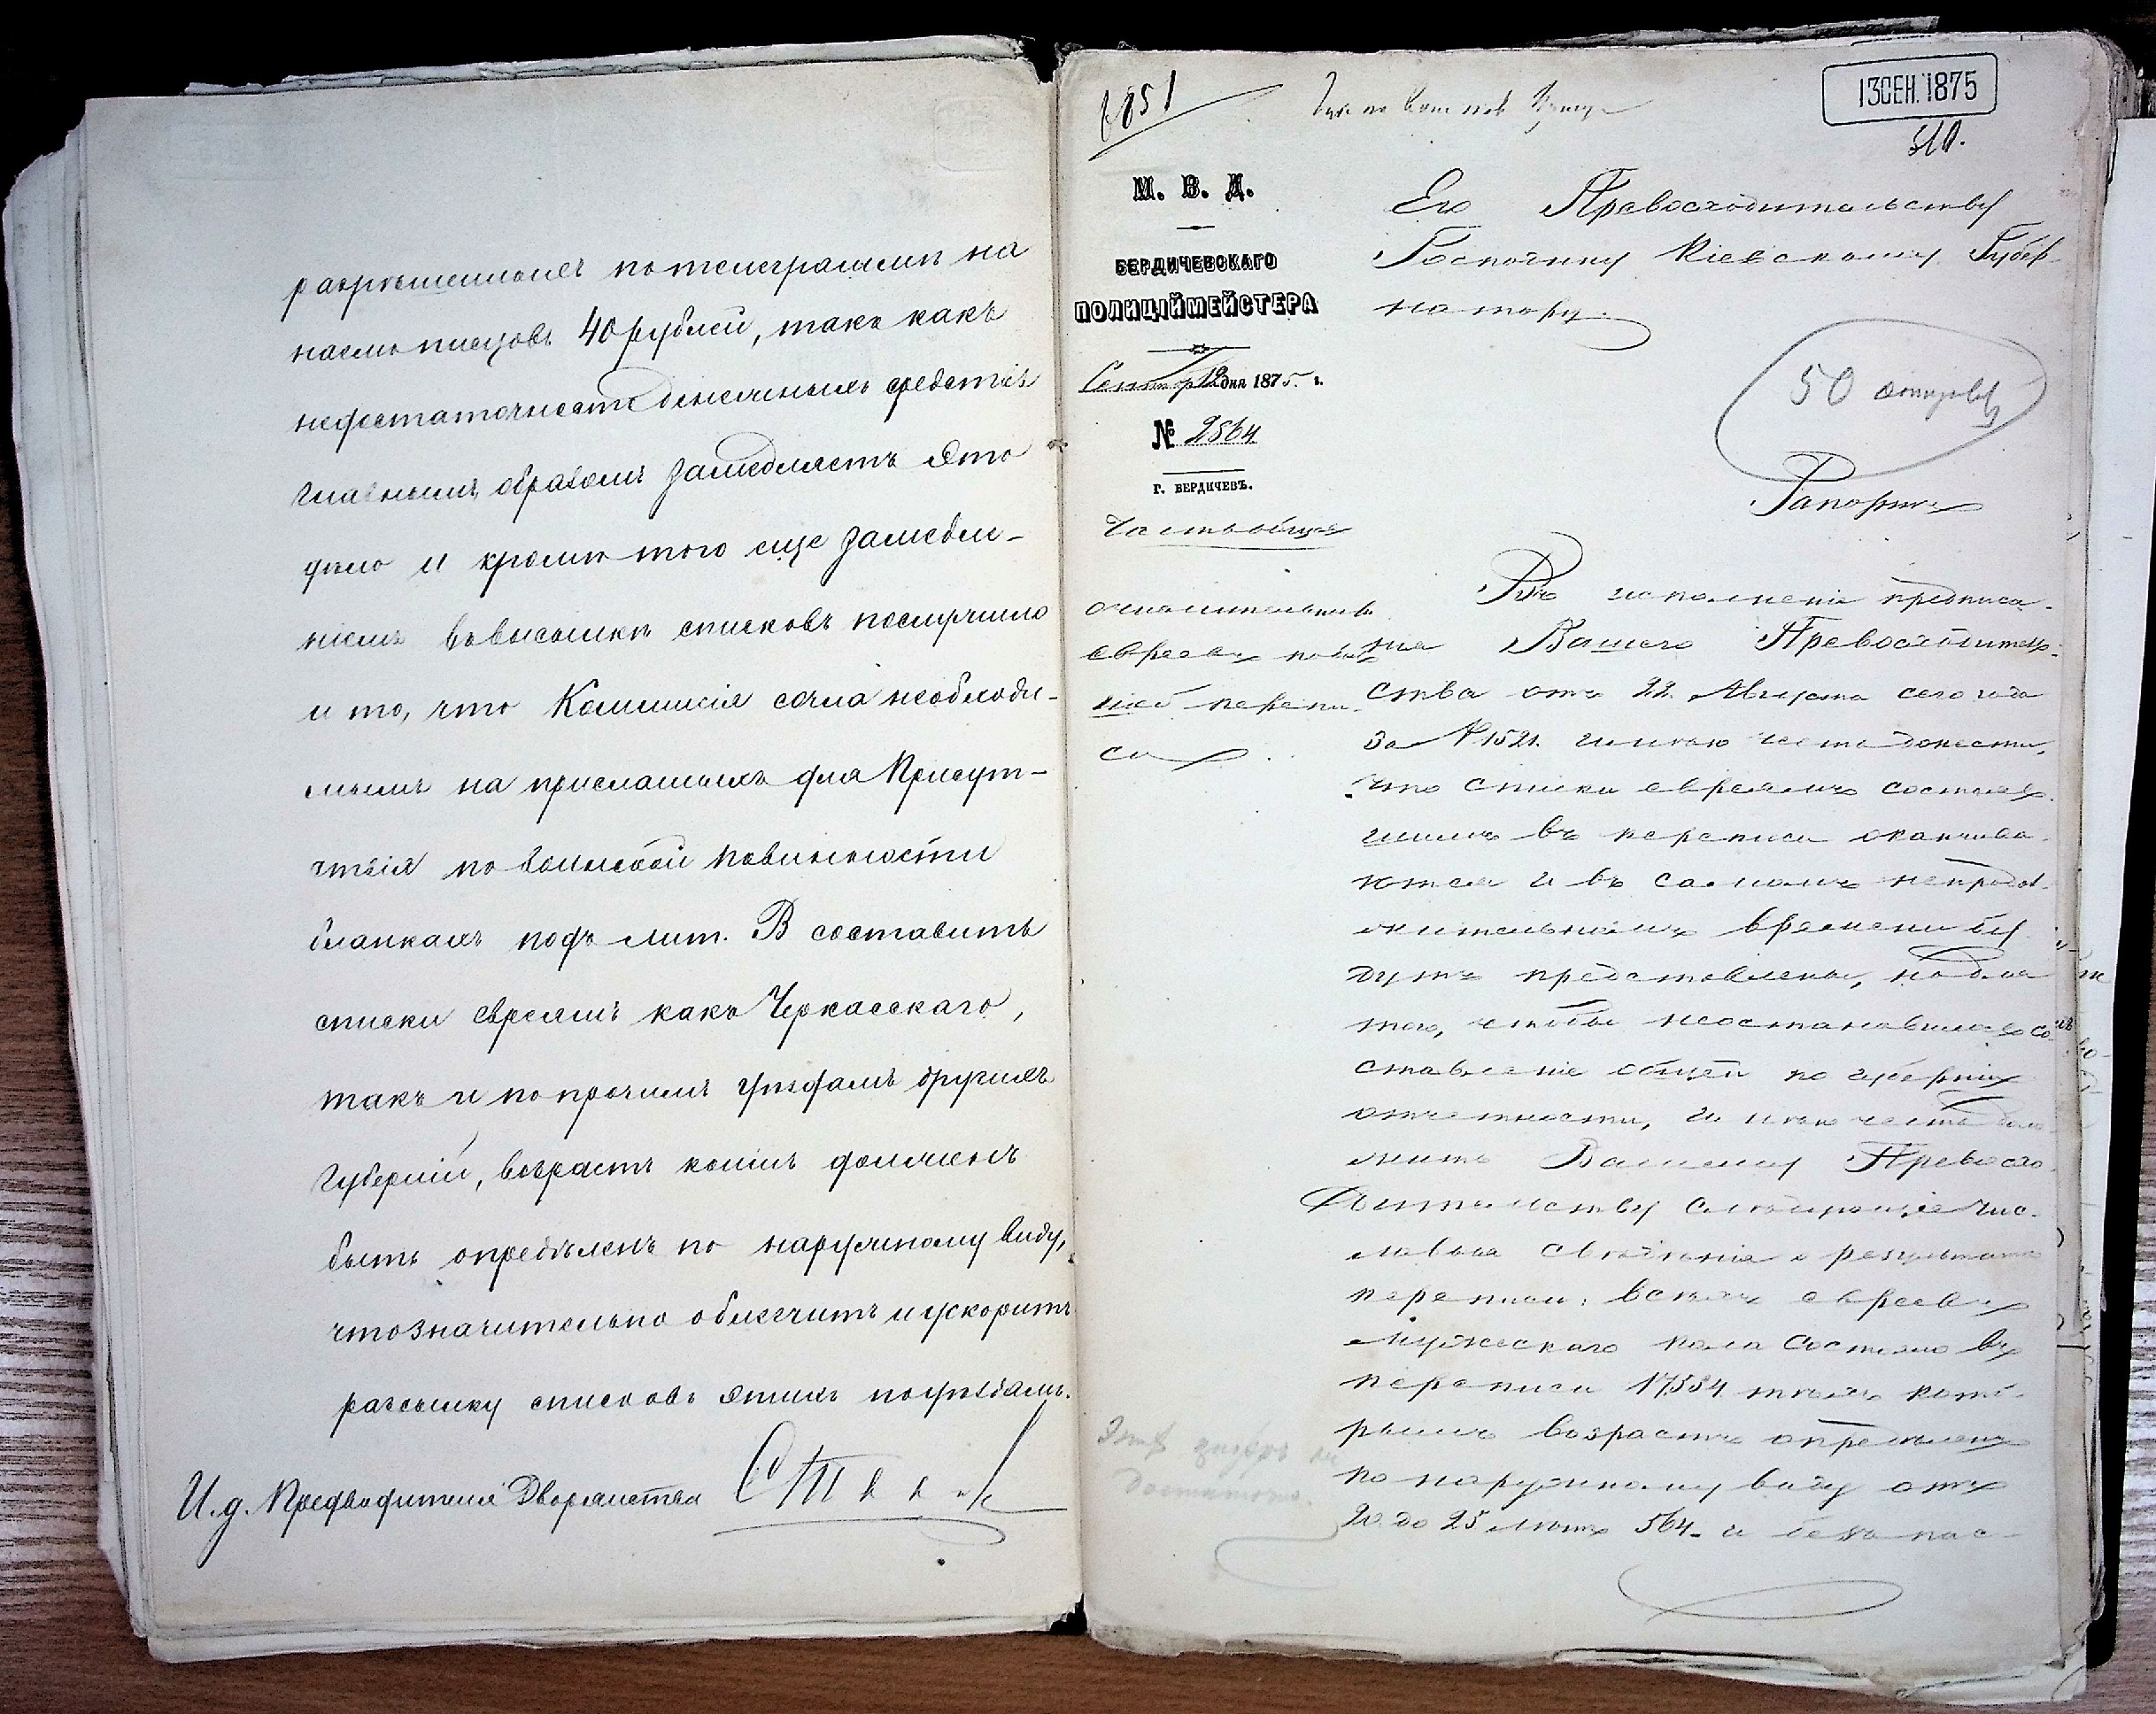 разрѣшенныхъ по телеграммѣ на
наемъ писцовъ 40 рублей, такъ какъ
недостаточность денежныхъ средствъ
главнымъ образомъ замедляетъ это
дѣло и кромѣ того еще замедле-
ніемъ въ высылкѣ списковъ послужило
и то, что Коммисія сочла необходи-
мымъ на присланныхъ для Присут-
ствія по воинской повинности
бланкахъ подъ лит. В составить
списки евреямъ какъ Черкасскаго,
такъ и по прочимъ уѣздамъ другихъ
губерній, возрастъ коимъ долженъ
быть опредѣленъ по наружному виду,
что значительно облегчитъ и ускоритъ
разсылку списковъ этихъ по уѣздамъ.
И.д. Предводителя Дворянства
13 СЕН. 1875
510.
М. В. Д.
БЕРДИЧЕВСКАГО
ПОЛИЦІЙМЕЙСТЕРА
Сентября 12 дня 1875 г.
№ 2564
Г. БЕРДИЧЕВЪ.
евреевъ
перепи-
си
Его Превосходительству
Господину Кіевскому Губер-
натору.
50
Рапортъ
Во исполненіе предписа-
нія Вашего Превосходитель-
ства отъ 22 Августа сего года
за № 1521. имѣю честь донести,
что списки евреямъ состояв-
шимъ въ переписи оканчива-
ются и въ самомъ непродол-
жительномъ времени бу-
дутъ представлены, но для
того, чтобы не остановилось со-
ставленіе общей по губерніи
отчетности, имѣю честь доло-
жить Вашему Превосхо-
дительству слѣдующіе чис-
ловыя свѣдѣнія о результатѣ
переписи: всѣхъ евреевъ
мужескаго пола состояло въ
переписи 17,584 тѣмъ, кото-
рымъ возрастъ опредѣленъ
по наружному виду отъ
20 до 25 лѣтъ 564. и безъ пас-